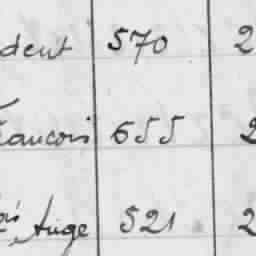 dent 570 2
François 655 2
ois Ange 521 2